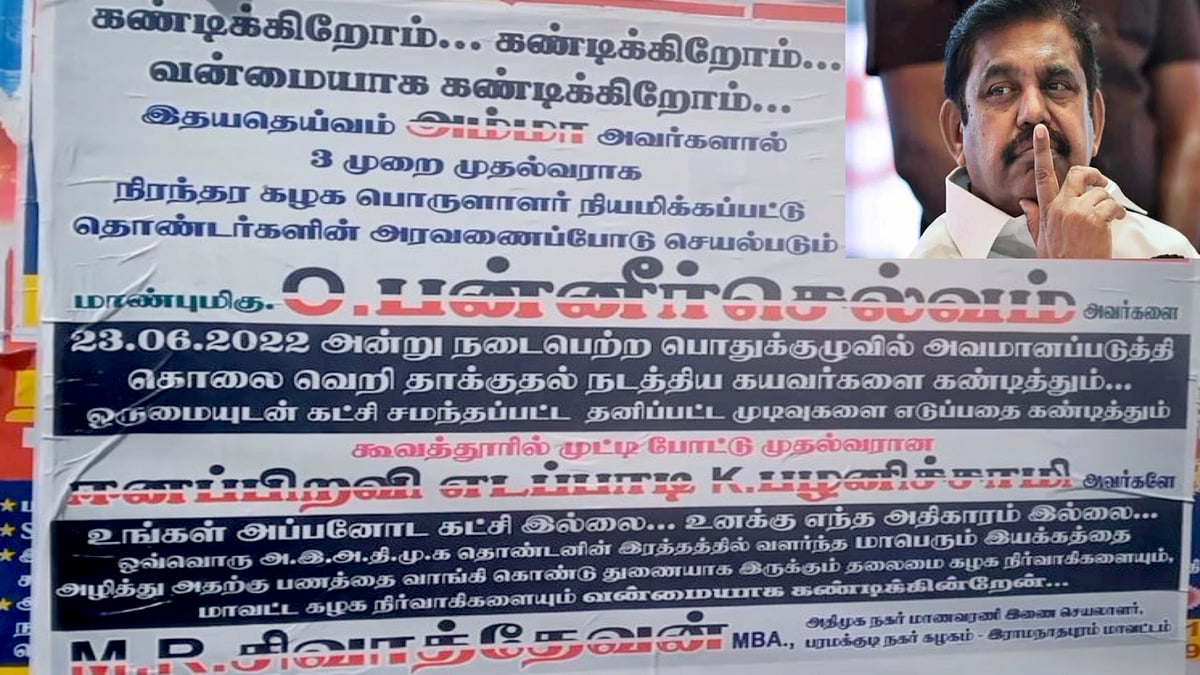 கண்டிக்கிறோம்... கண்டிக்கிறோம்...
வன்மையாக கண்டிக்கிறோம்...
இதயதெய்வம் அம்மா அவர்களால்
3 முறை முதல்வராக
நிரந்தர கழக பொருளாளர் நியமிக்கப்பட்டு
தொண்டர்களின் அரவணைப்போடு செயல்படும்
மாண்புமிகு. O.பன்னீர்செல்வம் அவர்களை
23.06.2022 அன்று நடைபெற்ற பொதுக்குழுவில் அவமானப்படுத்தி
கொலை வெறி தாக்குதல் நடத்திய கயவர்களை கண்டித்தும்...
ஒருமையுடன் கட்சி சமந்தப்பட்ட தனிப்பட்ட முடிவுகளை எடுப்பதை கண்டித்தும்
கூவத்தூரில் முட்டி போட்டு முதல்வரான
ஈனப்பிறவி எடப்பாடி K.பழனிச்சாமி அவர்களே
உங்கள் அப்பனோட கட்சி இல்லை... உனக்கு எந்த அதிகாரம் இல்லை...
ஒவ்வொரு அ.இ.அ.தி.மு.க தொண்டனின் இரத்தத்தில் வளர்ந்த மாபெரும் இயக்கத்தை
அழித்து அதற்கு பணத்தை வாங்கி கொண்டு துணையாக இருக்கும் தலைமை கழக நிர்வாகிகளையும்,
மாவட்ட கழக நிர்வாகிகளையும் வன்மையாக கண்டிக்கின்றேன்...
M.R.சிவாத்தேவன் MBA.,
அதிமுக நகர் மாணவரணி இணை செயலாளர்,
பரமக்குடி நகர் கழகம் - இராமநாதபுரம் மாவட்டம்